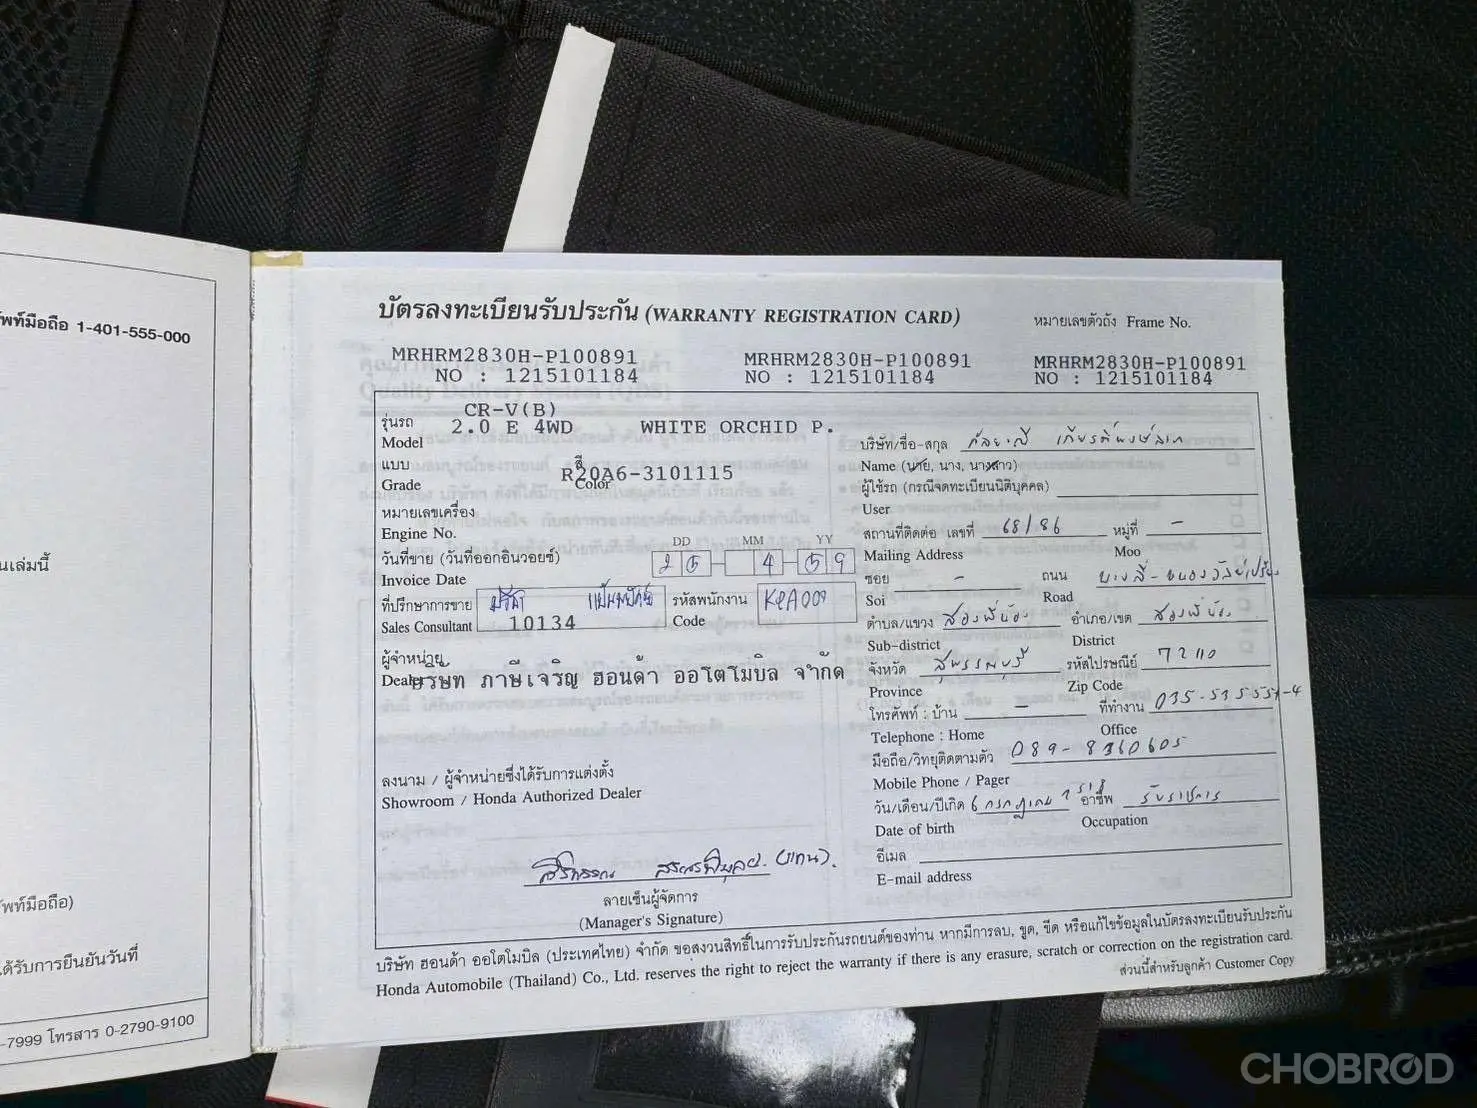 ัพท์มือถือ 1-401-555-000
นเล่มนี้
ัพท์มือถือ)
ด้รับการยืนยันวันที่
-7999 โทรสาร 0-2790-9100
บัตรลงทะเบียนรับประกัน (WARRANTY REGISTRATION CARD)
หมายเลขตัวถัง Frame No.
MRHRM2830H-P100891 MRHRM2830H-P100891 MRHRM2830H-P100891
NO : 1215101184 NO : 1215101184 NO : 1215101184
CR-V(B)
รุ่นรถ 2.0 E 4WD WHITE ORCHID P.
Model
แบบ สี
R20A6-3101115
Grade Color
หมายเลขเครื่อง
Engine No.
DD MM YY
วันที่ขาย (วันที่ออกอินวอยซ์) 25 - 4 - 59
Invoice Date
ที่ปรึกษาการขาย รหัสพนักงาน KPA009
Sales Consultant 10134 Code
ผู้จำหน่าย
Dealer บริษัท ภาษีเจริญ ฮอนด้า ออโตโมบิล จำกัด
ลงนาม / ผู้จำหน่ายซึ่งได้รับการแต่งตั้ง
Showroom / Honda Authorized Dealer
(แทน).
ลายเซ็นผู้จัดการ
(Manager's Signature)
บริษัท/ชื่อ-สกุล
Name (นาย, นาง, นางสาว)
ผู้ใช้รถ (กรณีจดทะเบียนนิติบุคคล)
User
สถานที่ติดต่อ เลขที่ 68/86 หมู่ที่ -
Mailing Address Moo
ซอย - ถนน บางลี่-หนองวัลย์เปรียง
Soi Road
ตำบล/แขวง สองพี่น้อง อำเภอ/เขต สองพี่น้อง
Sub-district District
จังหวัด สุพรรณบุรี รหัสไปรษณีย์ 72110
Province Zip Code
โทรศัพท์ : บ้าน - ที่ทำงาน
Telephone : Home Office
มือถือ/วิทยุติดตามตัว 089-8360605
Mobile Phone / Pager
วัน/เดือน/ปีเกิด 6 กรกฎาคม อาชีพ รับราชการ
Date of birth Occupation
อีเมล
E-mail address
บริษัท ฮอนด้า ออโตโมบิล (ประเทศไทย) จำกัด ขอสงวนสิทธิ์ในการรับประกันรถยนต์ของท่าน หากมีการลบ, ขูด, ขีด หรือแก้ไขข้อมูลในบัตรลงทะเบียนรับประกัน
Honda Automobile (Thailand) Co., Ltd. reserves the right to reject the warranty if there is any erasure, scratch or correction on the registration card.
ส่วนนี้สำหรับลูกค้า Customer Copy
CHOBROD